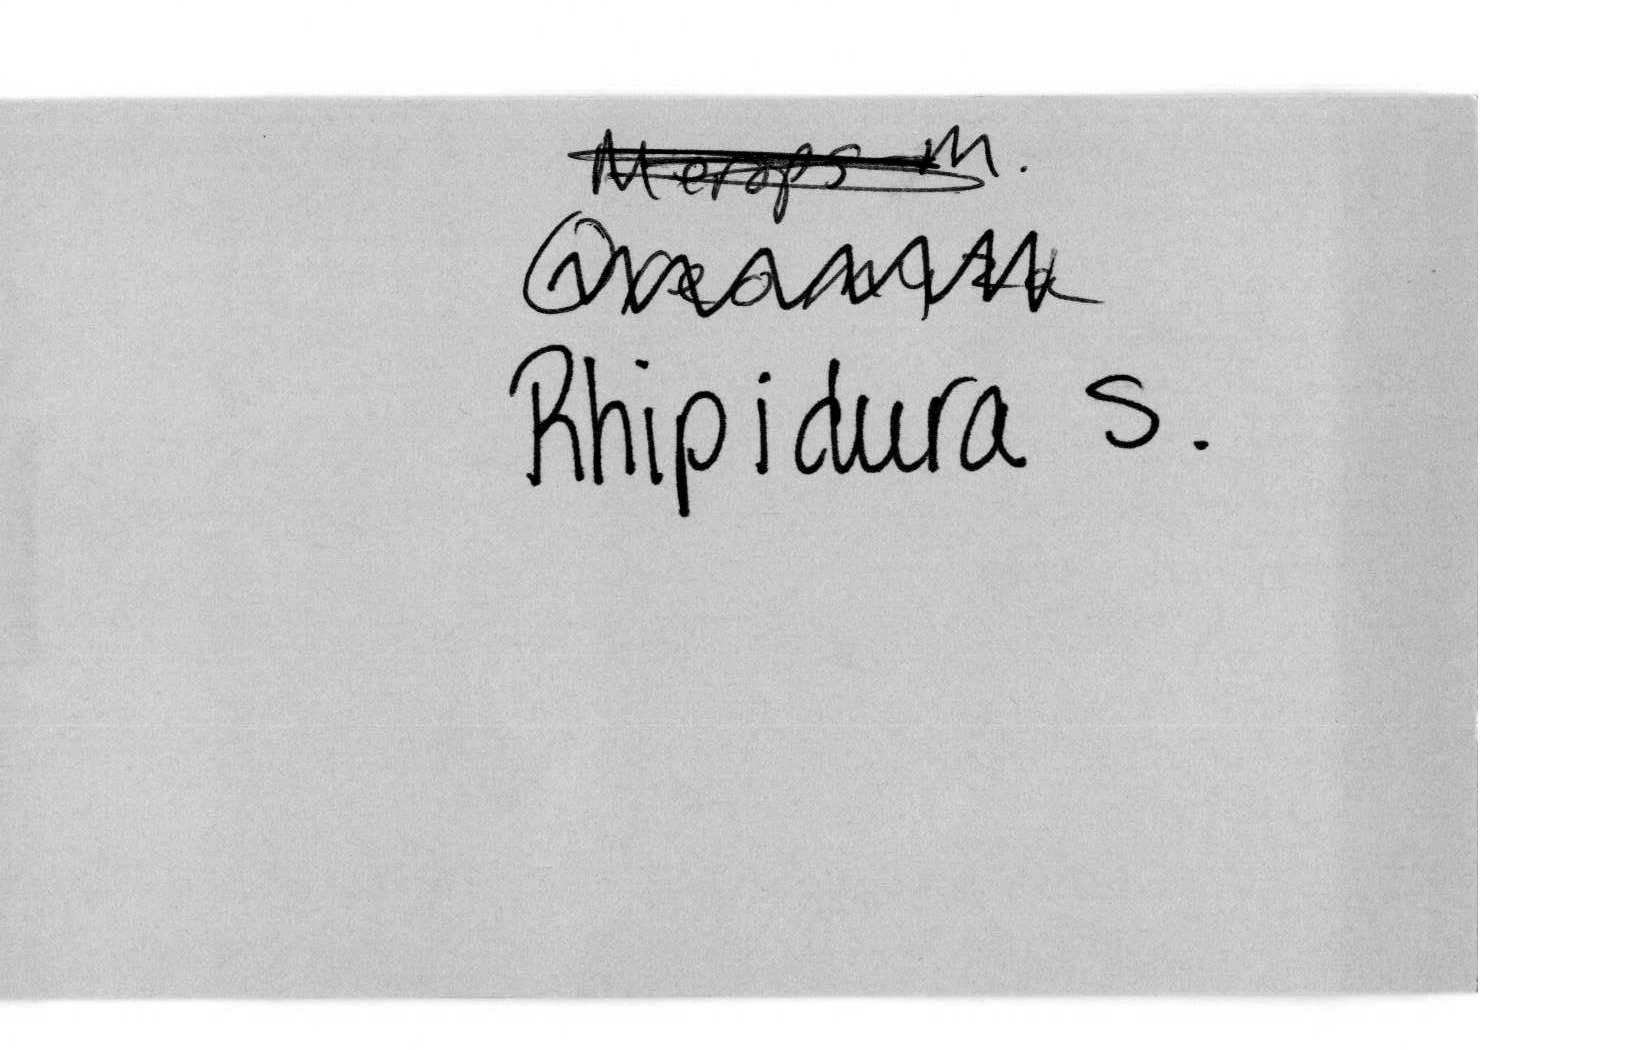 Merops m.
Rhipidura s.